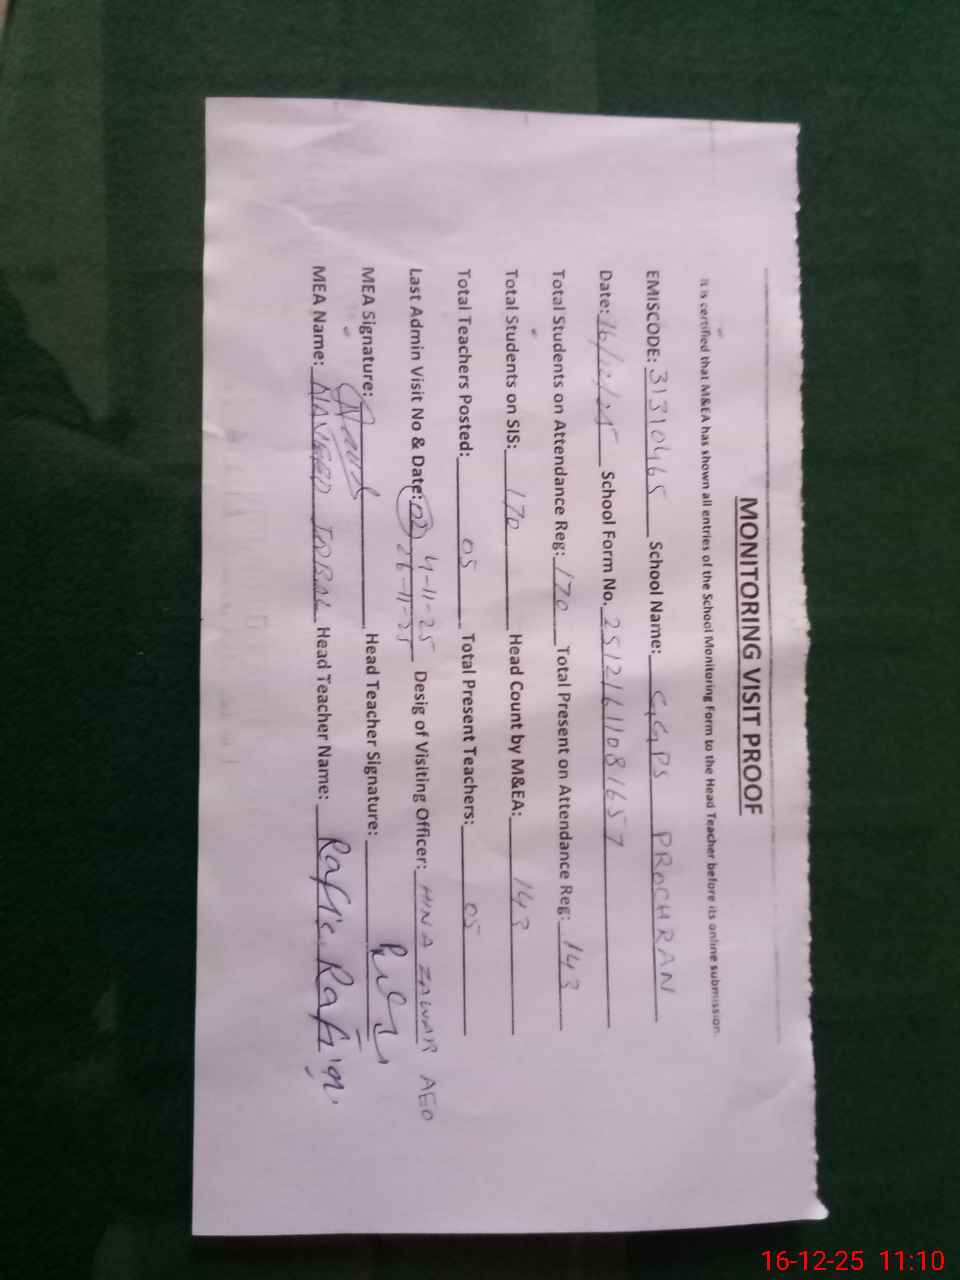 MONITORING VISIT PROOF
It is certified that M&EA has shown all entries of the School Monitoring Form to the Head Teacher before its online submission.
EMISCODE: 31310465 School Name: GGPS PROCHRAN
Date: 16/12/25 School Form No. 25121611081657
Total Students on Attendance Reg: 170 Total Present on Attendance Reg: 143
Total Students on SIS: 170 Head Count by M&EA: 143
Total Teachers Posted: 05 Total Present Teachers: 05
Last Admin Visit No & Date: 02 4-11-25 26-11-25 Desig of Visiting Officer: HINA ZAWAR AEO
MEA Signature: Head Teacher Signature:
MEA Name: NAVEED IQBAL Head Teacher Name:
16-12-25 11:10